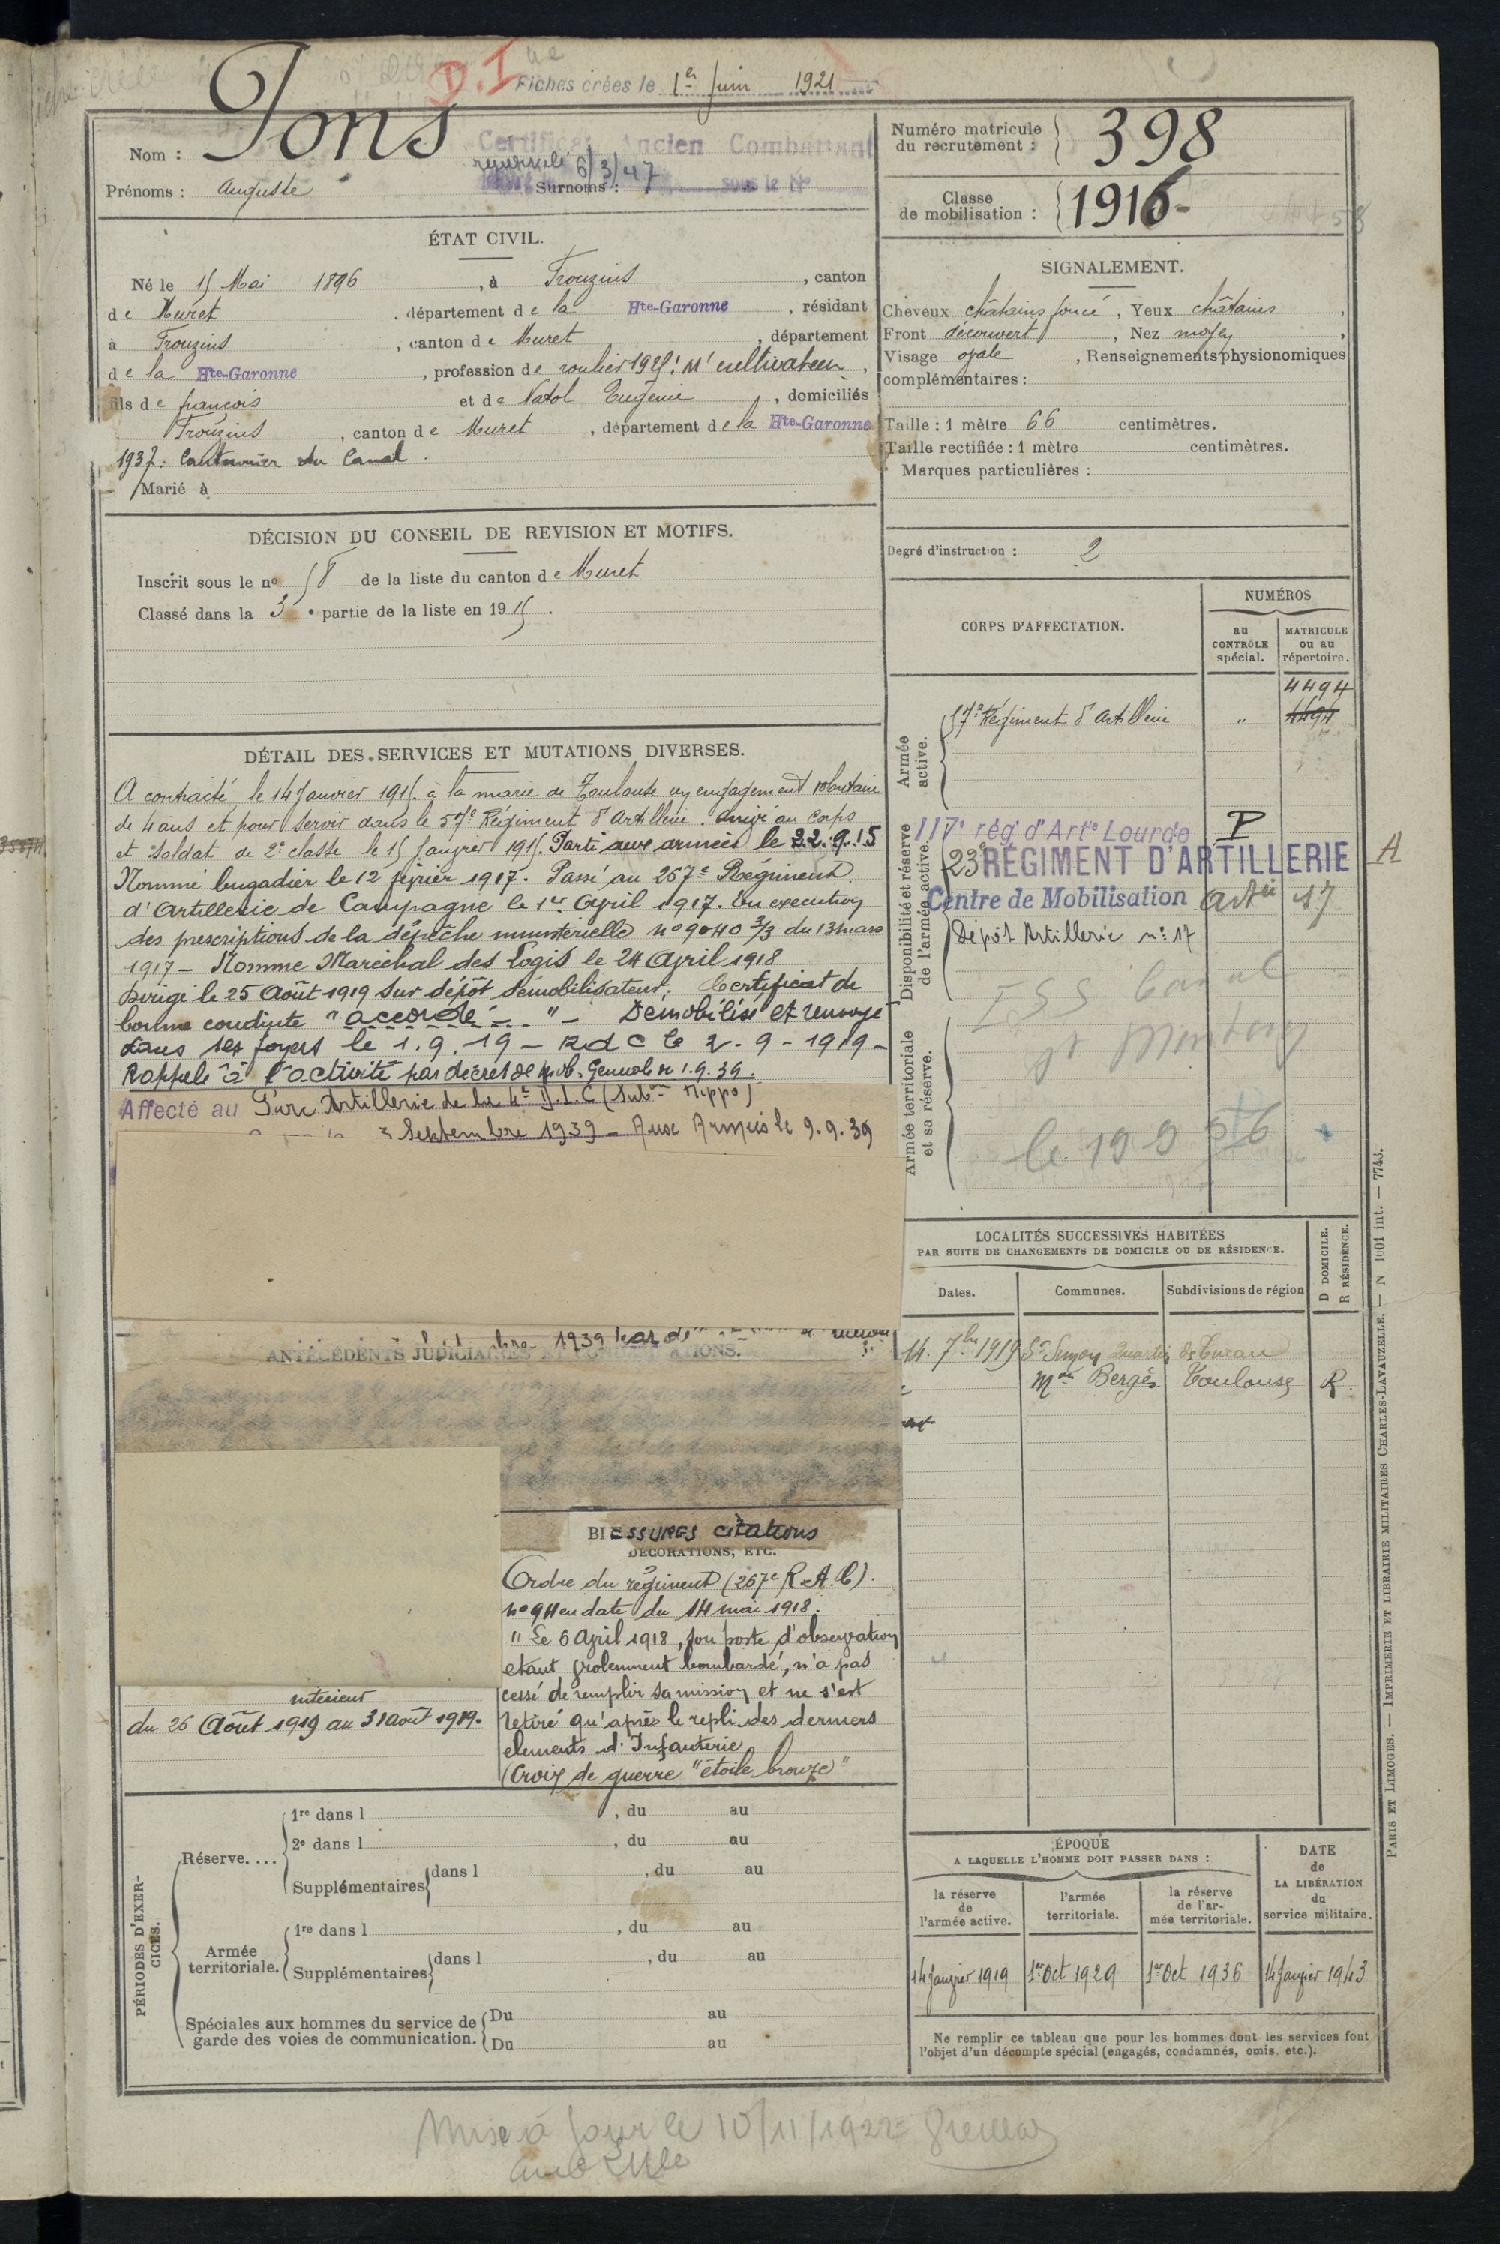 D.I
Fiches créées le 1er Juin 1921
Nom : Pons
Certificat Ancien Combattant
6/3/47
Surnoms : sous le N°
Prénoms : Auguste
Numéro matricule du recrutement : 398
Classe de mobilisation : 1916
ÉTAT CIVIL.
Né le 15 Mai 1896, à Frouzins, canton
de Muret, département de la Hte-Garonne, résidant
à Frouzins, canton de Muret, département
de la Hte-Garonne, profession de roulier 1928: Me cultivateur,
fils de françois et de Natol Eugénie, domiciliés
Frouzins, canton de Muret, département de la Hte-Garonne
1937: Cantonnier du Canal.
Marié à
SIGNALEMENT.
Cheveux châtains foncé, Yeux châtains,
Front découvert, Nez moyen,
Visage ovale, Renseignements physionomiques
complémentaires :
Taille : 1 mètre 66 centimètres.
Taille rectifiée : 1 mètre centimètres.
Marques particulières :
Degré d'instruction : 2
DÉCISION DU CONSEIL DE REVISION ET MOTIFS.
Inscrit sous le no 58 de la liste du canton de Muret
Classé dans la 3e partie de la liste en 1915.
DÉTAIL DES SERVICES ET MUTATIONS DIVERSES.
A contracté, le 14 Janvier 1915 à la mairie de Toulouse un engagement volontaire
de 4 ans et pour servir dans le 57e Régiment d'Artillerie. Arrivé au corps
et soldat de 2e classe le 15 Janvier 1915. Parti aux armées le 22.9.15
Nommé brigadier le 12 février 1917. Passé au 267e Régiment
d'Artillerie de Campagne le 1er Avril 1917. En execution
des prescriptions de la dépêche ministérielle no 9040 3/3 du 13 mars
1917 - Nommé Maréchal des Logis le 24 Avril 1918
Dirigé le 25 Août 1919 sur dépôt démobilisateur, Certificat de
bonne conduite "accordé" - Démobilisé et renvoyé
dans ses foyers le 1.9.19 - RdC le 2-9-1919-
Rappelé à l'activité par décret de mob. Genérale du 1.9.39.
Affecté au Parc Artillerie de la 4e D.I.C (Subon Hippo)
Septembre 1939 - Aux Armées le 9.9.39
1939
ANTÉCÉDENTS JUDICIAIRES ET CONDAMNATIONS.
BLESSURES citations
DÉCORATIONS, ETC.
Ordre du régiment (267e R.A.C).
no 94 en date du 14 mai 1918.
"Le 6 Avril 1918, son poste d'observation
étant violemment bombardé, n'a pas
cessé de remplir sa mission et ne s'est
retiré qu'après le repli des derniers
éléments d'Infanterie
(Croix de guerre "étoile bronze"
intérieur
du 26 Août 1919 au 31 août 1919.
CORPS D'AFFECTATION.
NUMÉROS
au CONTRÔLE spécial.
MATRICULE ou au répertoire.
Armée active.
57e Régiment d'Artillerie " 4494
4494
Disponibilité et réserve de l'armée active.
117e rég d'Artie Lourde P
23e RÉGIMENT D'ARTILLERIE A
Centre de Mobilisation Artie 17
Dépôt Artillerie n° 17
Armée territoriale et sa réserve.
LOCALITÉS SUCCESSIVES HABITÉES
PAR SUITE DE CHANGEMENTS DE DOMICILE OU DE RÉSIDENCE.
Dates. Communes. Subdivisions de région
D DOMICILE. R RÉSIDENCE.
14. 7bre 1919 St Simon quartier de
Mon Bergès Toulouse R
PÉRIODES D'EXERCICES.
Réserve....
1re dans l , du au
2e dans l , du au
Supplémentaires dans l , du au
Armée territoriale.
1re dans l , du au
Supplémentaires dans l , du au
Spéciales aux hommes du service de garde des voies de communication.
Du au
Du au
ÉPOQUE
A LAQUELLE L'HOMME DOIT PASSER DANS :
la réserve de l'armée active.
l'armée territoriale.
la réserve de l'armée territoriale.
DATE de LA LIBÉRATION du service militaire.
14 Janvier 1919 1er Oct 1929 1er Oct 1936 14 Janvier 1943
Ne remplir ce tableau que pour les hommes dont les services font
l'objet d'un décompte spécial (engagés, condamnés, omis, etc.).
PARIS ET LIMOGES. — IMPRIMERIE ET LIBRAIRIE MILITAIRES CHARLES-LAVAUZELLE. — N 1001 int. — 7743.
Mise à jour le 10/11/1922